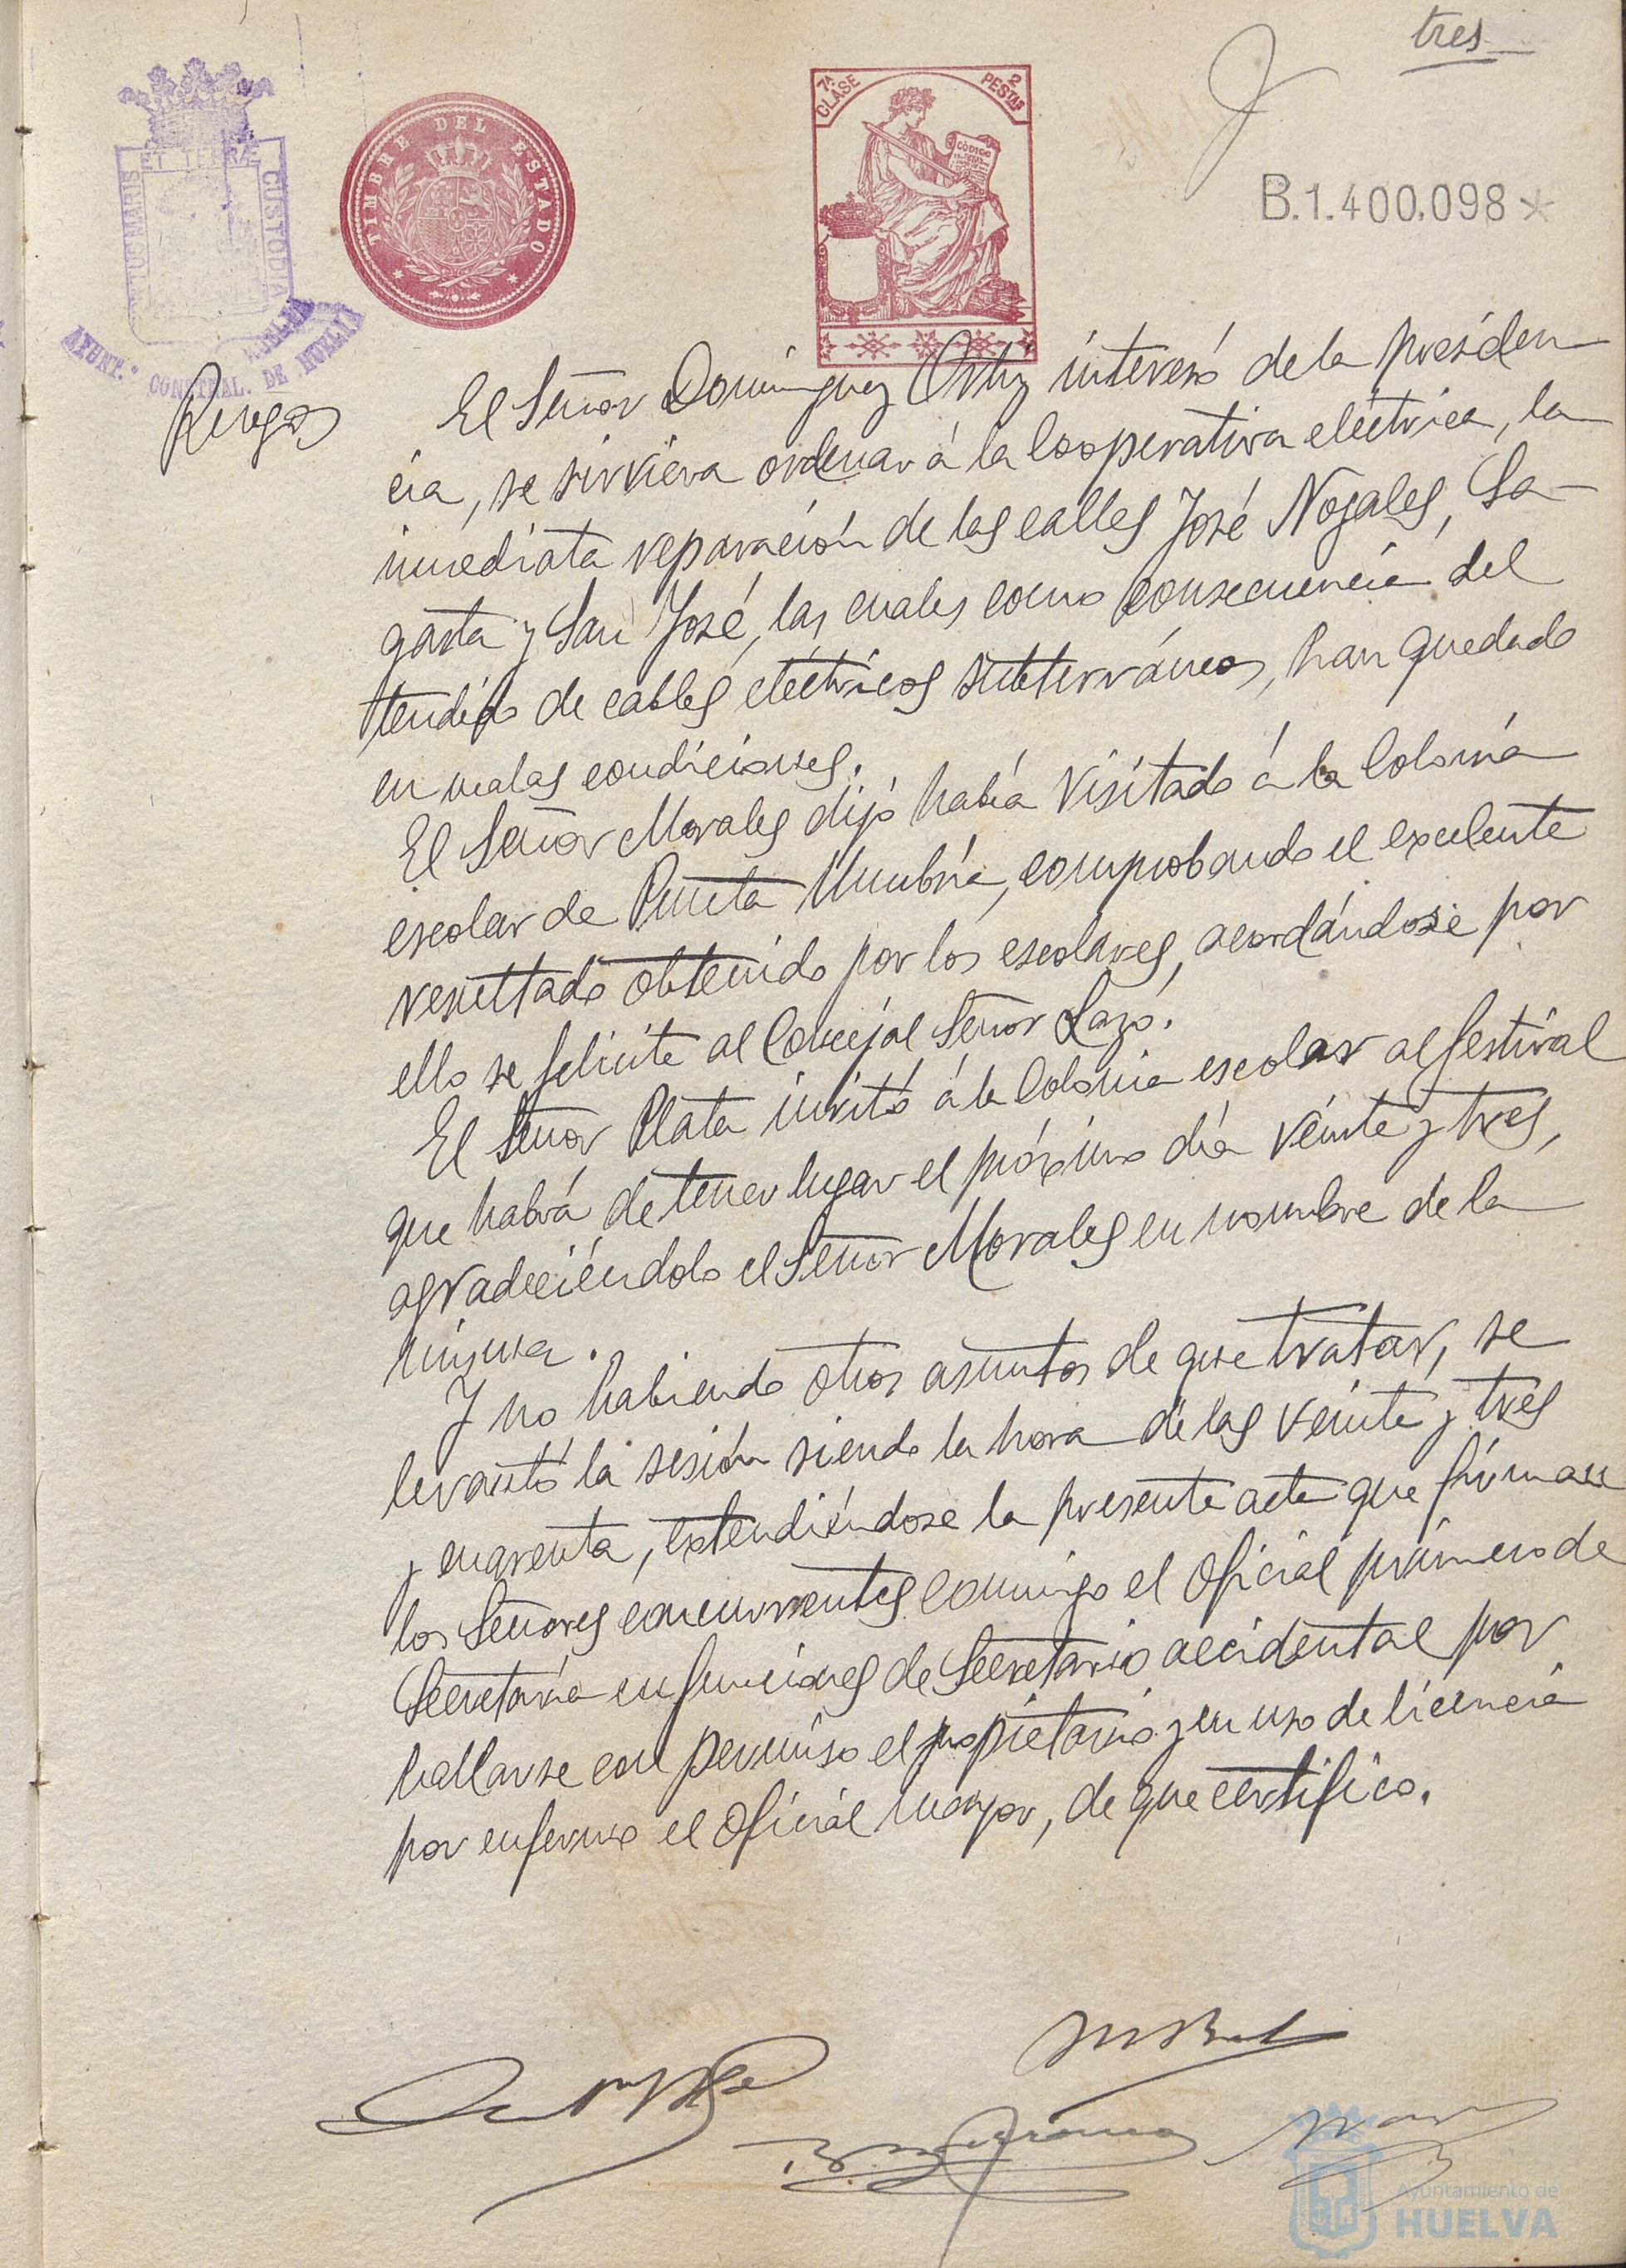 tres
7ª CLASE
2 PESTAS
CÓDIGO
TIMBRE DEL ESTADO
PORTUS MARIS ET TERRÆ CUSTODIA
AYUNT.º CONSTNAL. DE HUELVA
B.1.400.098*
Ruegos
El Señor Domínguez Ortiz interesó de la presiden
cia, se sirviera ordenar á la Cooperativa eléctrica, la
inmediata reparación de las calles José Nogales, Sa-
gasta y San José, las cuales como consecuencia del
tendido de cables eléctricos subterráneos, han quedado
en malas condiciones.
El Señor Morales dijo había visitado á la Colonia
escolar de Punta Umbría, comprobando el excelente
resultado obtenido por los escolares, acordándose por
ello se felicite al Concejal Señor Lazo.
El Señor Plata invitó á la Colonia escolar al festival
que habrá de tener lugar el próximo día veinte y tres,
agradeciéndolo el Señor Morales en nombre de la
misma.
Y no habiendo otros asuntos de que tratar, se
levantó la sesión siendo la hora de las veinte y tres
y cuarenta, extendiéndose la presente acta que firman
los Señores concurrentes conmigo el Oficial primero de
Secretaría en funciones de Secretario accidental por
hallarse con permiso el propietario y en uso de licencia
por enfermo el Oficial mayor, de que certifico.
Ayuntamiento de
HUELVA